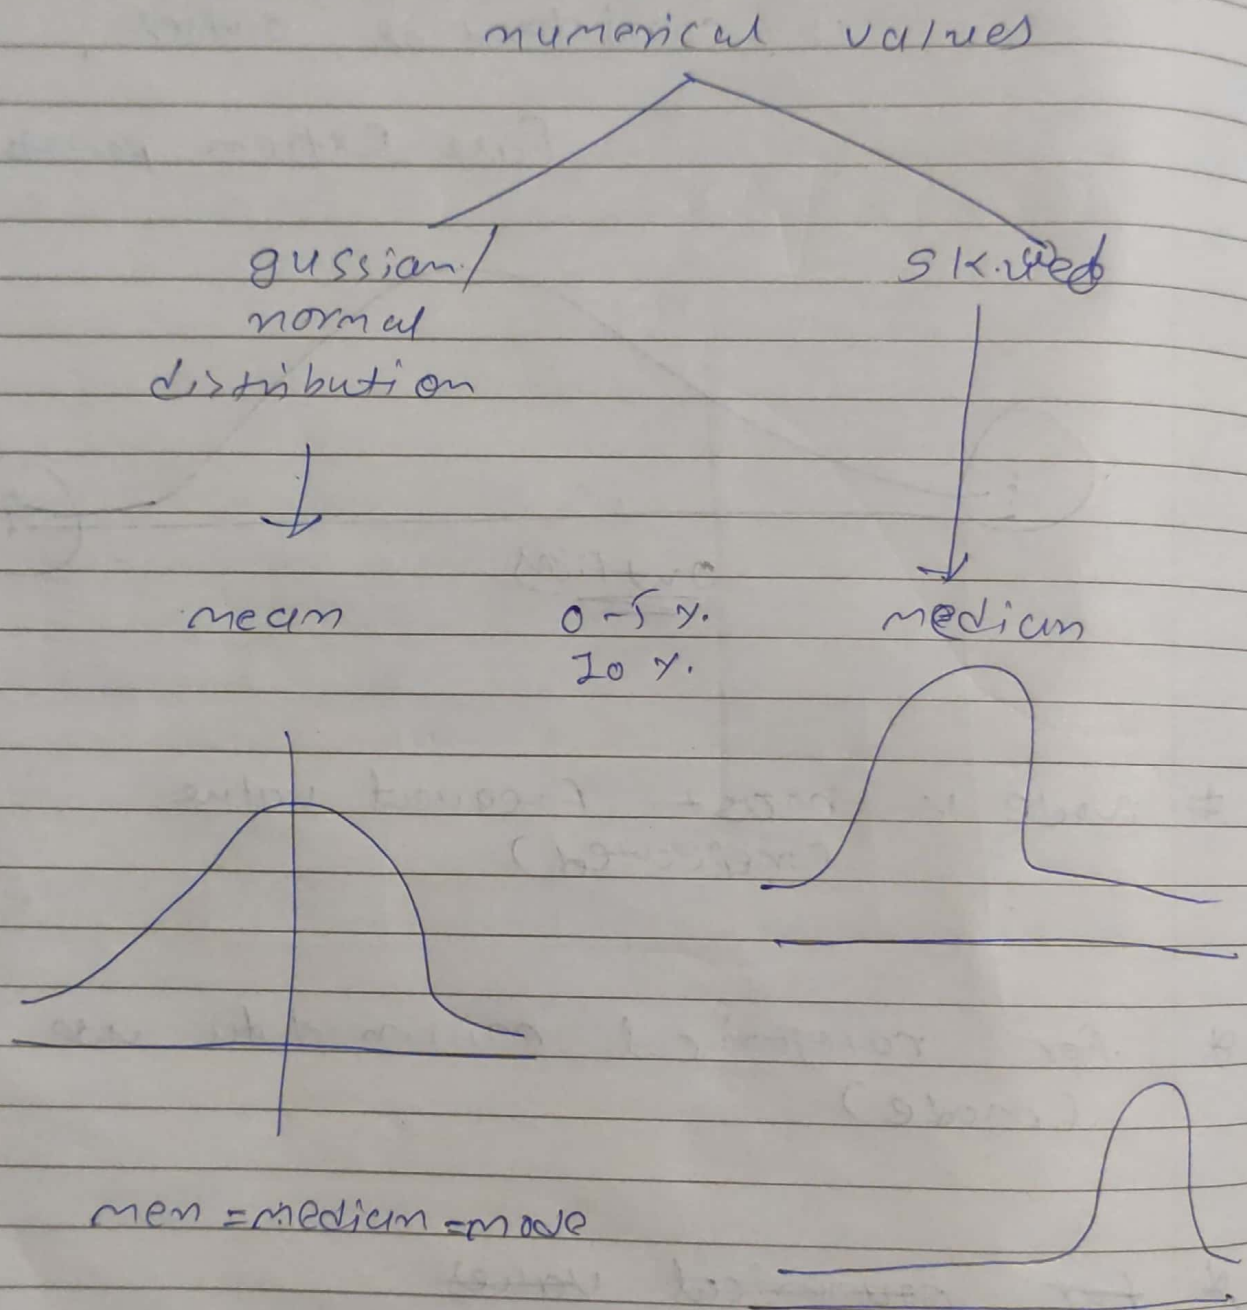 numerical values
gussian/
normal
distribution
mean
0-5 %.
median
men = median = mode